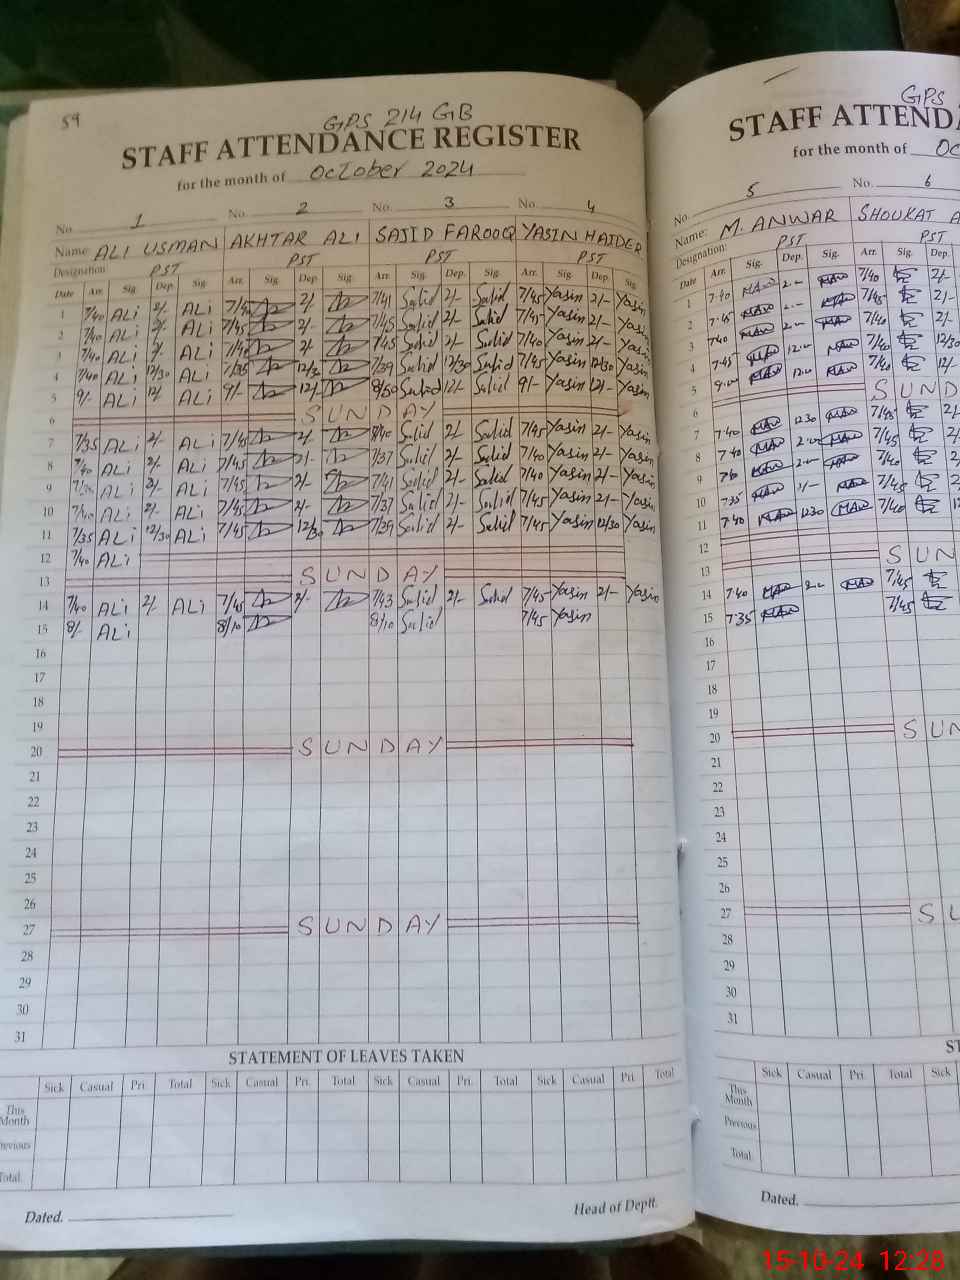 59
GPS 214 GB
STAFF ATTENDANCE REGISTER
for the month of October 2024
No. 1 No. 2 No. 3 No. 4
Name: ALI USMAN AKHTAR ALI SAJID FAROOQ YASIN HAIDER
Designation: PST PST PST PST
Date Arr. Sig. Dep. Sig. Arr. Sig. Dep. Sig. Arr. Sig. Dep. Sig. Arr. Sig. Dep. Sig.
1 7/40 ALi 2/- ALi 7/45 2/- 7/41 Sajid 2/- Sajid 7/45 Yasin 2/- Yasin
2 7/40 ALi 2/- ALi 7/45 2/- 7/45 Sajid 2/- Sajid 7/45 Yasin 2/- Yasin
3 7/40 ALi 2/- ALi 7/40 2/- 7/45 Sajid 2/- Sajid 7/40 Yasin 2/- Yasin
4 7/40 ALi 12/30 ALi 7/35 12/30 7/39 Sajid 12/30 Sajid 7/45 Yasin 12/30 Yasin
5 9/- ALi 12/- ALi 9/- 12/- 8/50 Sajid 12/- Sajid 9/- Yasin 12/- Yasin
6 SUNDAY
7 7/35 ALi 2/- ALi 7/45 2/- 8/40 Sajid 2/- Sajid 7/45 Yasin 2/- Yasin
8 7/40 ALi 2/- ALi 7/45 2/- 7/37 Sajid 2/- Sajid 7/40 Yasin 2/- Yasin
9 ALi 2/- ALi 7/45 2/- 7/41 Sajid 2/- Sajid 7/40 Yasin 2/- Yasin
10 7/40 ALi 2/- ALi 7/45 2/- 7/37 Sajid 2/- Sajid 7/45 Yasin 2/- Yasin
11 7/35 ALi 12/30 ALi 7/45 12/30 7/39 Sajid 2/- Sajid 7/45 Yasin 12/30 Yasin
12 7/40 ALi
13 SUNDAY
14 7/40 ALi 2/- ALi 7/45 2/- 7/43 Sajid 2/- Sajid 7/45 Yasin 2/- Yasin
15 8/- ALi 8/10 8/10 Sajid 7/45 Yasin
16
17
18
19
20 SUNDAY
21
22
23
24
25
26
27 SUNDAY
28
29
30
31
STATEMENT OF LEAVES TAKEN
Sick Casual Pri. Total Sick Casual Pri. Total Sick Casual Pri. Total Sick Casual Pri. Total
This Month
Previous
Total
Dated. Head of Deptt.
GPS
STAFF ATTENDA
for the month of Oc
No. 5 No. 6
Name: M. ANWAR SHOUKAT A
Designation: PST PST
Date Arr. Sig. Dep. Sig. Arr. Sig. Dep.
1 7.40 2.00 7/40 2/-
2 7.45 2.00 7/45 2/-
3 7.40 2.00 7/40 2/-
4 7.45 12.00 7/40 12/30
5 9.00 12.00 7/40 12/-
6 SUND
7 7.40 12.30 7/45 2/-
8 7.40 2.00 7/45 2/-
9 2.00 7/40
10 7.35 7/45
11 7.40 12.30 7/40
12
13 SUN
14 7.40 2.00 7/45
15 7.35 7/45
16
17
18
19
20 SUN
21
22
23
24
25
26
27 SU
28
29
30
31
ST
Sick Casual Pri. Total Sick
This Month
Previous
Total
Dated.
15-10-24 12:28